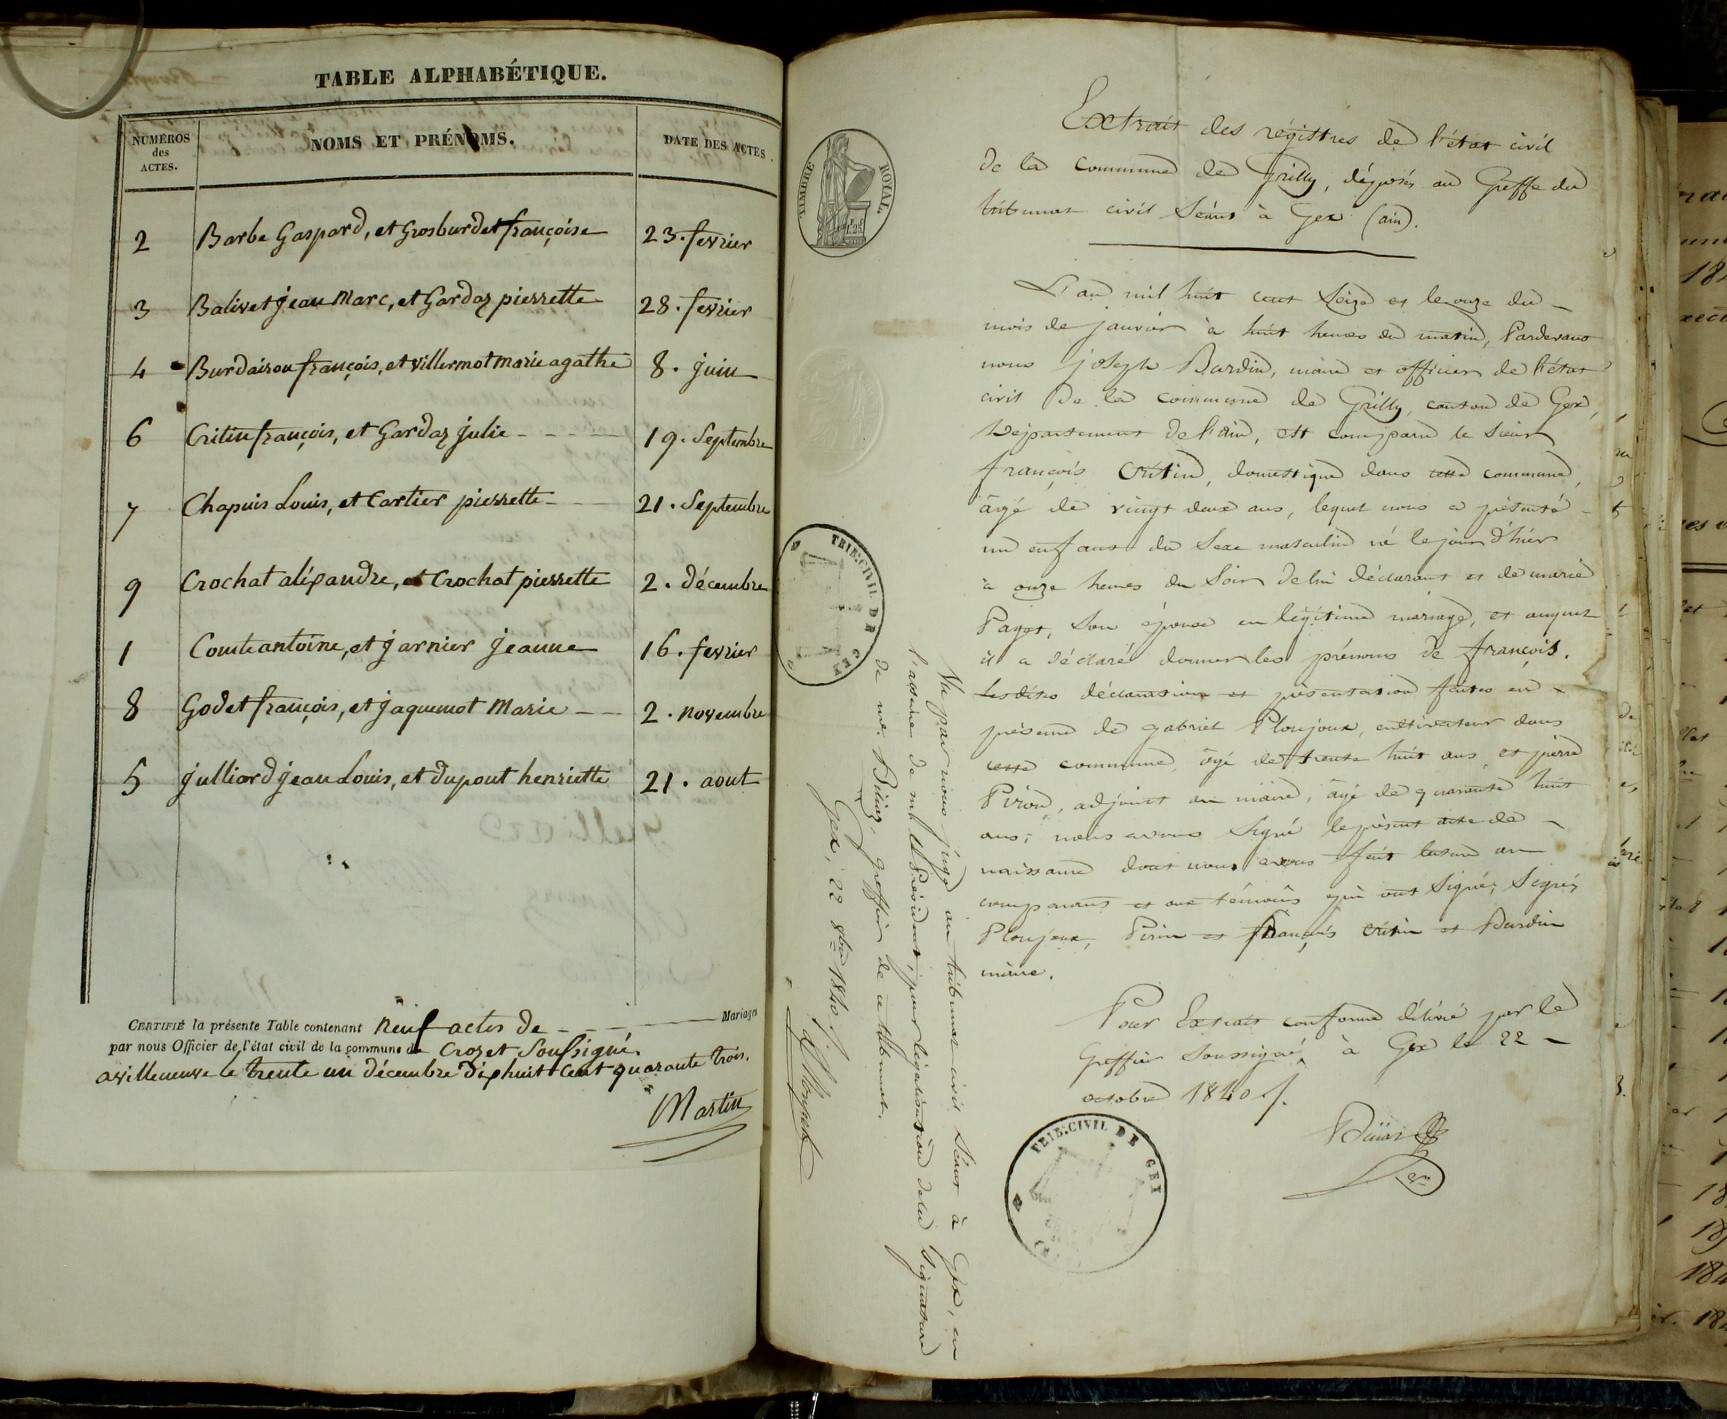 TABLE ALPHABÉTIQUE.
NUMÉROS des ACTES.
NOMS ET PRÉNOMS.
DATE DES ACTES.
2 Barbe Gaspard, et Grosburdet françoise 23. fevrier
3 Balivet jean Marc, et Gardaz pierrette 28. fevrier
4 Burdairon françois, et villermot marie agathe 8. juin
6 Critin françois, et Gardaz julie 19. Septembre
7 Chapuis Louis, et Cartier pierrette 21. Septembre
9 Crochat alexandre, et Crochat pierrette 2. décembre
1 Comte antoine, et jarnier jeanne 16. fevrier
8 Godet françois, et jaquemot Marie 2. novembre
5 julliard jean Louis, et dupont henriette 21. aout
CERTIFIÉ la présente Table contenant neuf actes de Mariages
par nous Officier de l'état civil de la commune de Crozet Soussigné.
a villeneuve le trente un décembre dix huit cent quarante trois.
Martin
TIMBRE ROYAL.
Extrait des régistres de l'état civil
de la commune de Grilly, déposés au Greffe du
tribunal civil séant à Gex (ain).
L'an mil huit cent seize et le onze du
mois de janvier à huit heures du matin, Pardevant
nous joseph Bardin, maire et officier de l'état
civil de la commune de Grilly, canton de Gex,
Département de l'ain, est comparu le sieur
françois Critin, domestique dans cette commune,
âgé de vingt deux ans, lequel nous a présenté
un enfant du sexe masculin né le jour d'hier
à onze heures du soir de lui déclarant et de marie
Paget, son épouse en légitime mariage, et auquel
il a déclaré donner les prénoms de françois.
Lesdites déclaration et présentation faites en
présence de gabriel Ploujoux, cultivateur dans
cette commune, âgé de trente huit ans, et pierre
Piron, adjoint au maire, âgé de quarante huit
ans; nous avons signé le présent acte de
naissance dont nous avons fait lecture au
comparant et aux témoins qui ont signé; signés
Ploujoux, Piron et françois Critin et Bardin
maire.
Pour Extrait conforme délivré par le
Greffier soussigné, à Gex le 22
octobre 1840.
TRIB. CIVIL DE GEX
TRIB. CIVIL DE GEX
Vu par nous juge au tribunal civil séant à Gex, en
l'absence de mr. le Président, pour légalisation de la signature
de me. greffier de ce tribunal.
Gex, 22 8bre 1840.